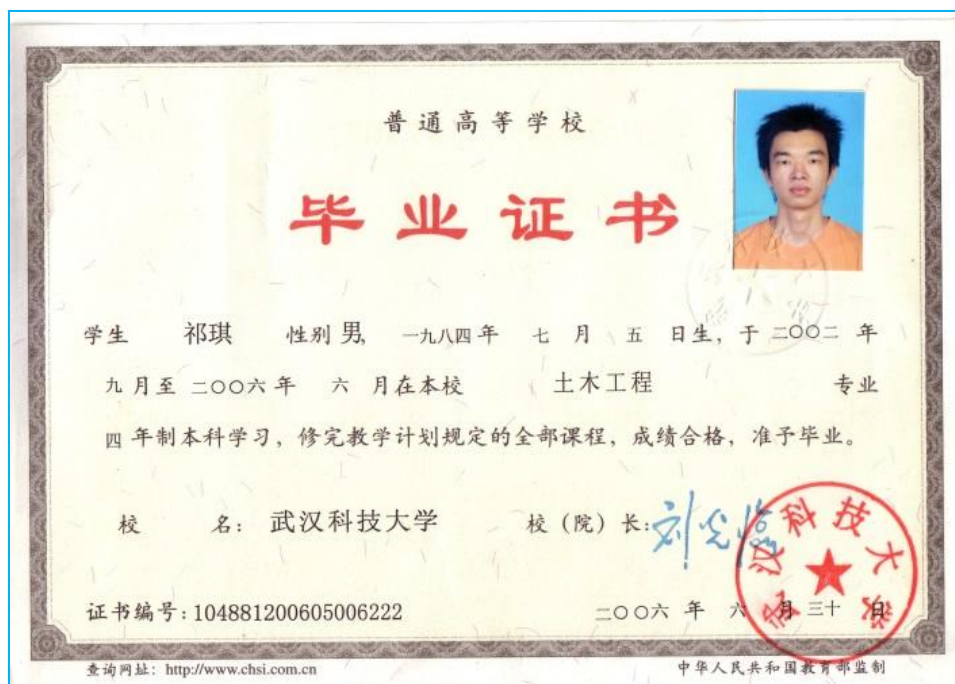 普通高等学校
毕业证书
学生 祁琪 性别 男, 一九八四年 七 月 五 日生, 于 二〇〇二 年
九 月至 二〇〇六 年 六 月在本校 土木工程 专业
四 年制本科学习, 修完教学计划规定的全部课程, 成绩合格, 准予毕业。
校 名: 武汉科技大学 校 (院) 长: 刘光临
武汉科技大学
证书编号: 104881200605006222 二〇〇六 年 六 月 三十 日
查询网址: http://www.chsi.com.cn 中华人民共和国教育部监制